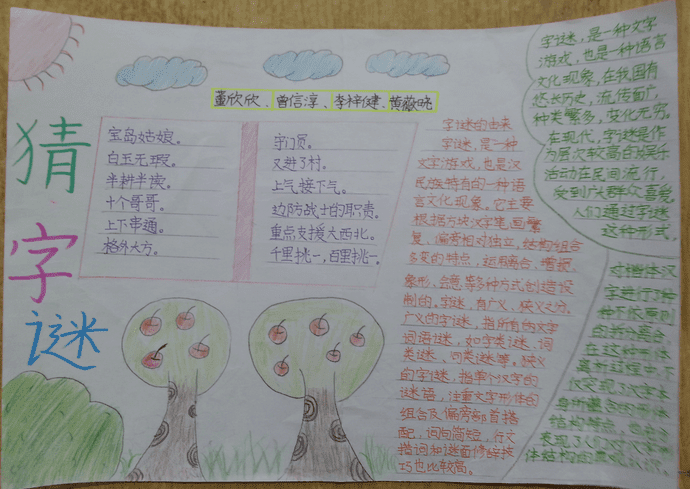 猜字谜
董欣欣、曾信淳、李梓健、黄薇
宝岛姑娘。
白玉无瑕。
半耕半读。
十个哥哥。
上下串通。
格外大方。
守门员。
又进了村。
上气接下气。
边防战士的职责。
重点支援大西北。
千里挑一,百里挑一。
字谜的由来
字谜,是一种
文字游戏,也是汉
民族特有的一种语
言文化现象。它主要
根据方块汉字笔画繁
复、偏旁相对独立,结构组合
多变的特点,运用离合、增损、
象形、会意等多种方式创造设
制的。字谜,有广义、狭义之分。
广义的字谜,指所有的文字
词语谜,如字类谜、词
类谜、句类谜等。狭义
的字谜,指单个汉字的
谜语,注重文字形体的
组合及偏旁部首搭
配,词句简短,行文
措词和谜面修辞技
巧也比较高。
字谜,是一种文字
游戏,也是一种语言
文化现象,在我国有
悠长历史,流传面广,
种类繁多,变化无穷。
在现代,字谜是作
为层次较高的娱乐
活动在民间流行,
受到广大群众喜爱。
人们通过字谜
这种形式,
对楷体汉
字进行了各
种下依原则
的拆拼离合,
在这种形体
离析过程中,不
仅发现了汉字本
身所蕴含的形体
结构特点,也体
表现了人们对汉字形
体结构的